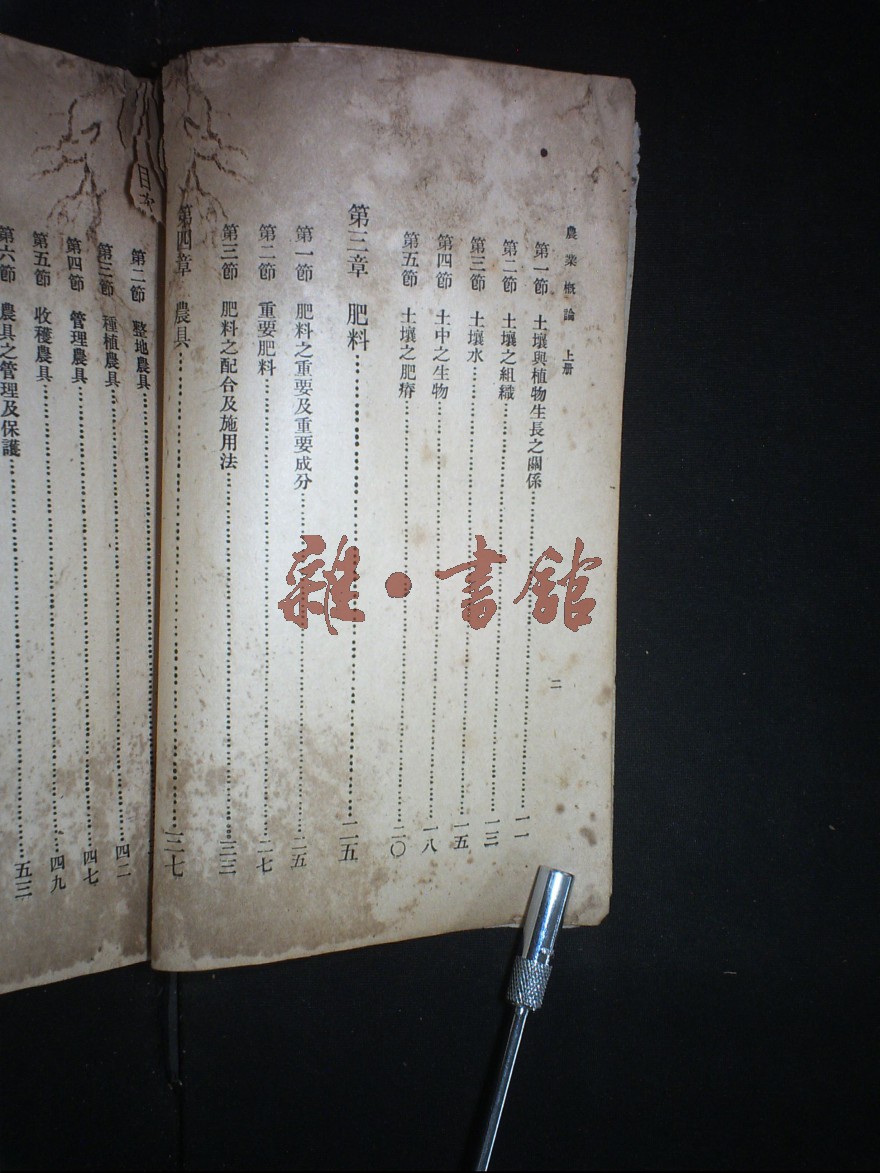 農業概論 上册
二
第一節 土壤與植物生長之關係……一一
第二節 土壤之組織……一三
第三節 土壤水……一五
第四節 土中之生物……一八
第五節 土壤之肥瘠……二〇
第三章 肥料……二五
第一節 肥料之重要及重要成分……二五
第二節 重要肥料……二七
第三節 肥料之配合及施用法……三三
第四章 農具……三七
目次
第二節 整地農具……四二
第三節 種植農具……四二
第四節 管理農具……四七
第五節 收穫農具……四九
第六節 農具之管理及保護……五三
雜·書館